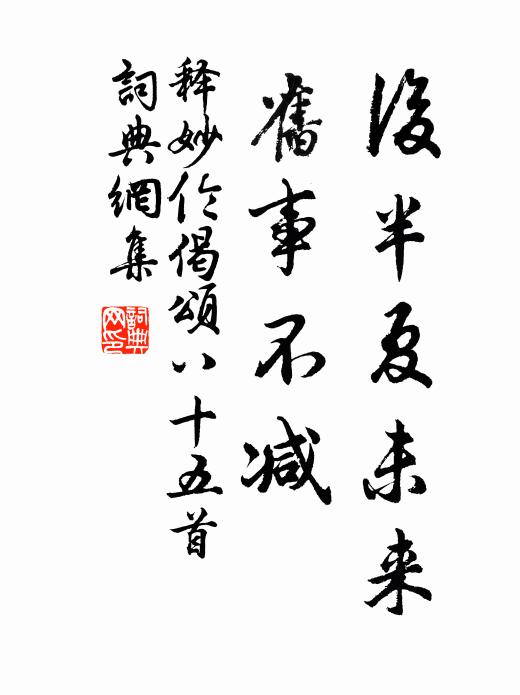 後半夏未来
舊事不減
释妙伦偈頌八十五首
詞典網集
詞典网印